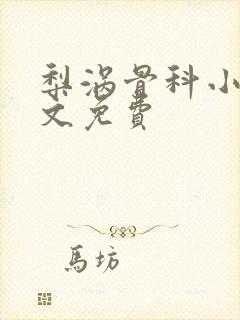 梨涡骨科小
文免費
馬坊